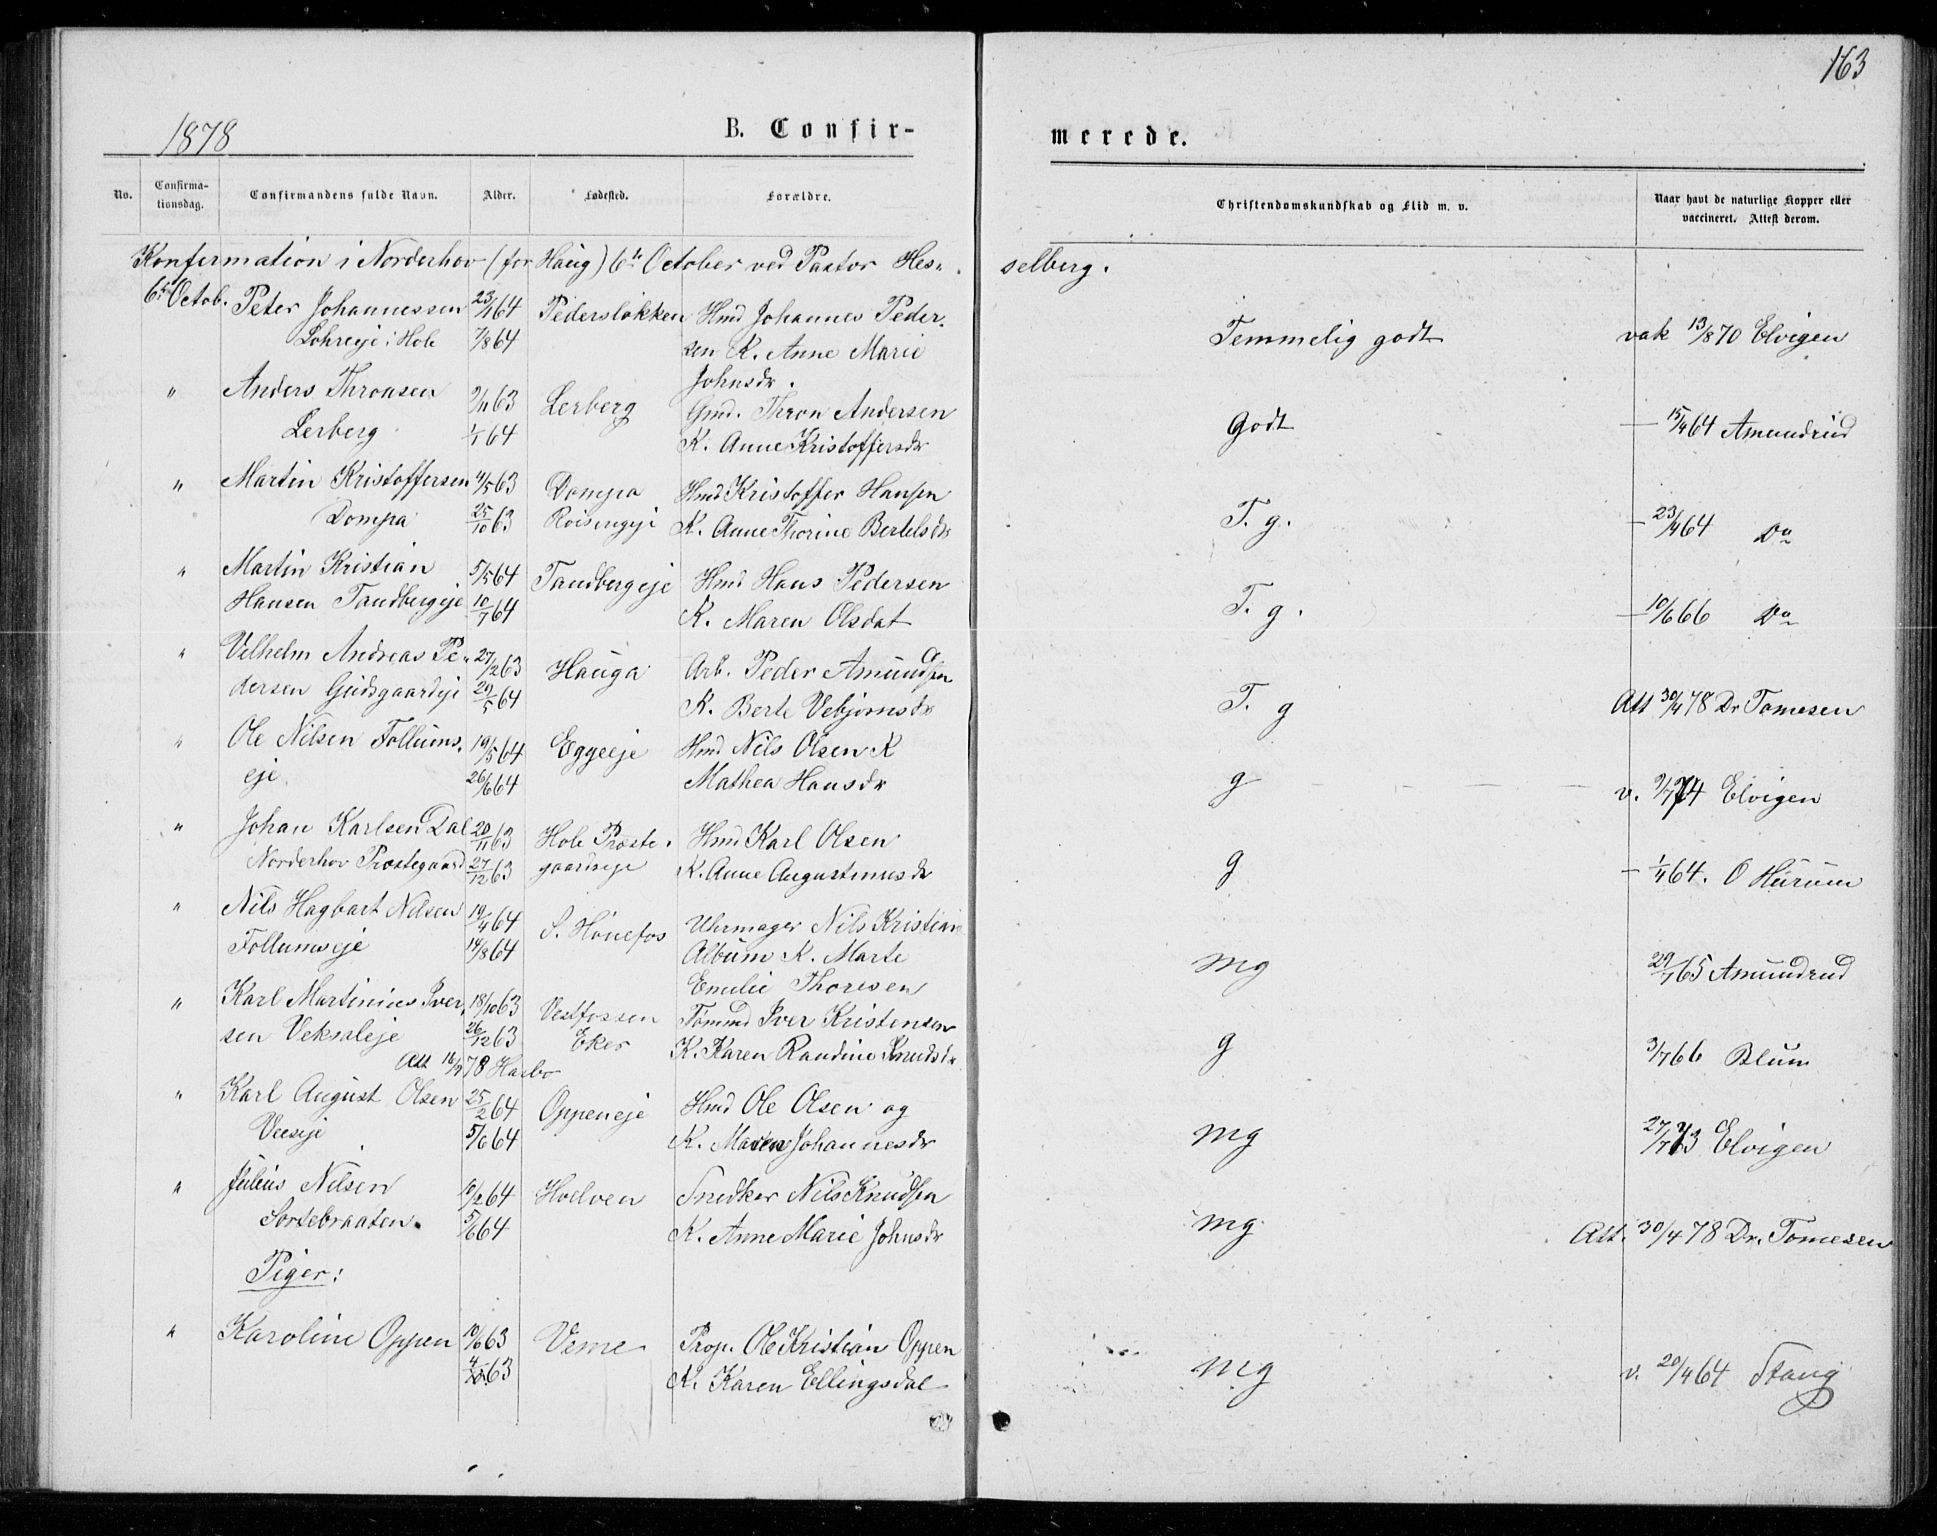 163
1878
B. Confir-
merede.
No.
Confirma-
tionsdag.
Confirmandens fulde Navn.
Alder.
Fødested.
Forældre.
Christendomskundskab og Flid m. v.
Naar havt de naturlige Kopper eller
vaccineret. Attest derom.
Konfirmation i Norderhov (for Haug) 6te October ved Pastor Hes-
selberg.
6te Octob. Peter Johannessen 23/1 64 Pedersløkken Hmd Johannes Peder-
Lohreje i Hole 7/8 64 sen K. Anne Marie
Johnsdr.
Temmelig godt vak 13/8 70 Elvigen
" Anders Thronsen 9/11 63 Lerberg Gmd. Thron Andersen
Lerberg 1/1 64 K. Anne Kristoffersdr
Godt — 15/4 64 Amundrud
" Martin Kristoffersen 4/5 63 Dompa Hmd Kristoffer Hansen
Dompa 25/10 63 Roisengeje K. Anne Thorine Bertelsdr
T. g. — 23/4 64 Do
" Martin Kristian 5/5 64 Tandbergeje Hmd Hans Pedersen
Hansen Tandbergeje 10/7 64 K. Maren Olsdat
T. g. — 10/6 66 Do
" Vilhelm Andreas Pe- 27/12 63 Hauga Arb. Peder Amundsen
dersen Gudsgaardeje 29/5 64 K. Berte Vebjørnsdr
T. g Att 30/4 78 Dr Tomesen
" Ole Nilsen Follums- 19/5 64 Eggeeje Hmd Nils Olsen K
eje. 26/6 64 Mathea Hansdr
g v. 9/7 74 Elvigen
" Johan Karlsen Dal 20/11 63 Hole Præste- Hmd Karl Olsen
Norderhov Præstegaard 27/12 63 gaardseje K. Anne Augustinusdr
g — 1/4 64. O Hurum
" Nils Hagbart Nilsen 19/4 64 S. Hönefos Uhrmager Nils Kristian
Follumseje 14/8 64 Album K. Marte
Emelie Thoresen
mg 29/1 65 Amundrud
" Karl Martinius Iver- 18/10 63 Vestfossen Tømmd Iver Kristensen
sen Veksaleje 26/12 63 Eker K. Karen Randine Knudsdr
g 3/7 66 Blum
Att 78 Harbo
" Karl August Olsen 25/2 64 Oppeneje Hmd Ole Olsen og
Veseje 5/6 64 K. Maren Johannesdr
mg 27/7 73 Elvigen
" Julius Nilsen 10/2 64 Hvelven Snedker Nils Knudsen
Sortebraaten. 5/6 64 K. Anne Marie Johnsdr
mg. Att. 30/4 78 Dr. Tomesen
Piger:
" Karoline Oppen 10/6 63 Veme Prop. Ole Kristian Oppen
63 K. Karen Ellingsdal
mg v. 20/4 64 Stang